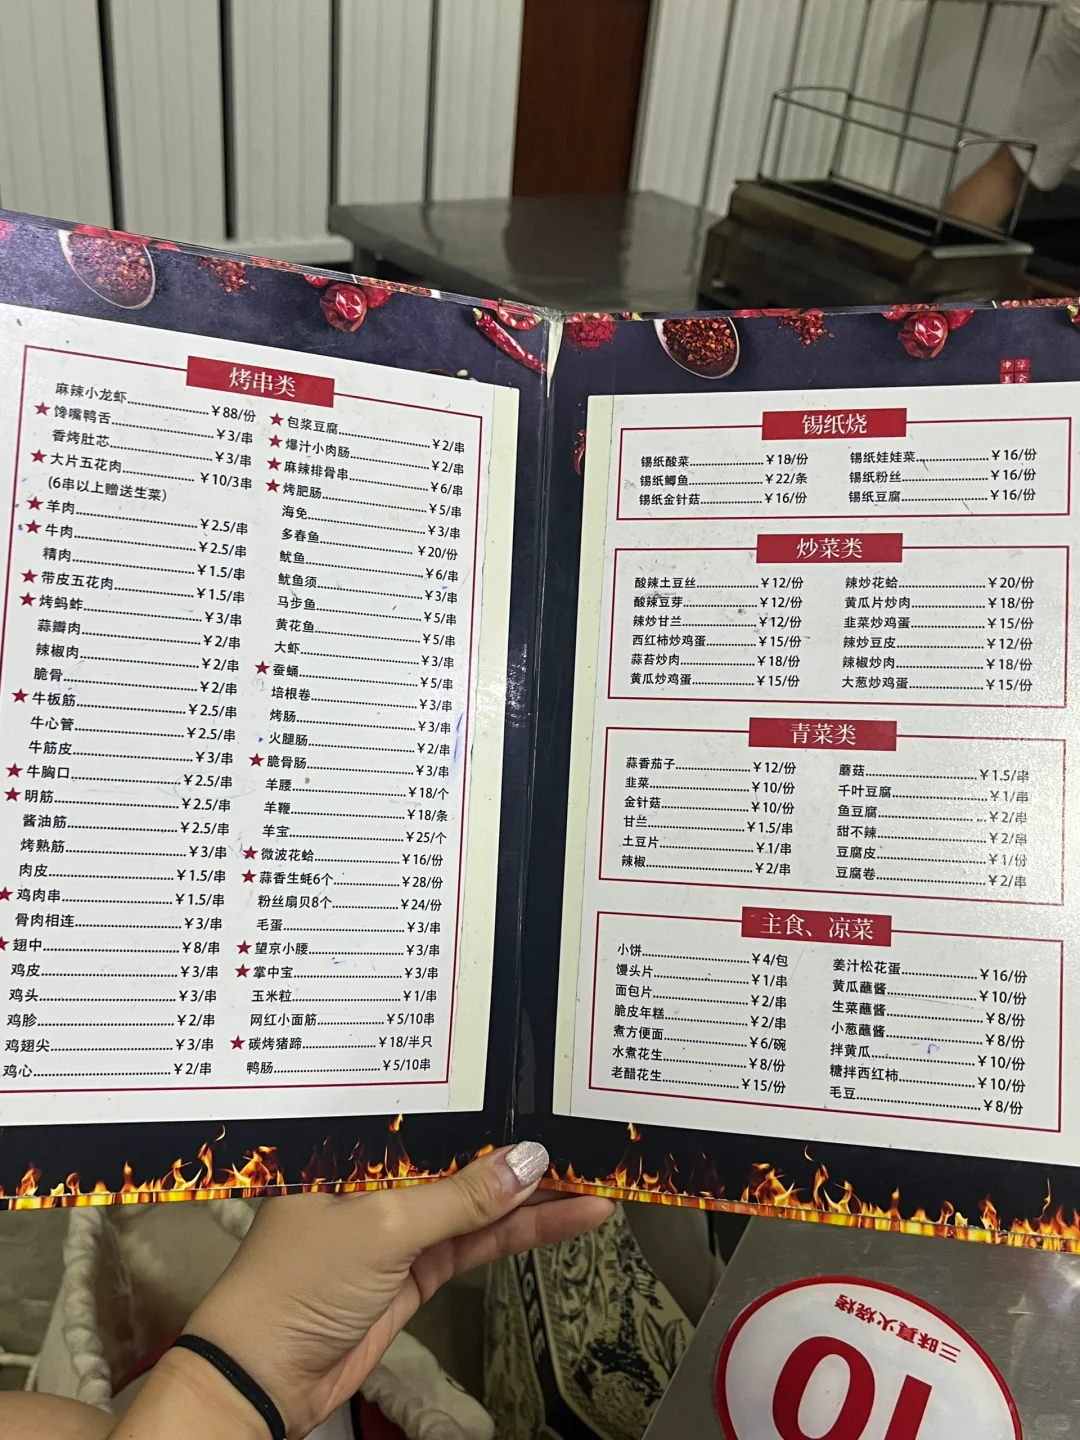 烤串类
麻辣小龙虾 ¥88/份
★馋嘴鸭舌 ¥3/串
香烤肚芯 ¥3/串
★大片五花肉 ¥10/3串
(6串以上赠送生菜)
★羊肉 ¥2.5/串
★牛肉 ¥2.5/串
精肉 ¥1.5/串
★带皮五花肉 ¥1.5/串
★烤蚂蚱 ¥3/串
蒜瓣肉 ¥2/串
辣椒肉 ¥2/串
脆骨 ¥2/串
★牛板筋 ¥2.5/串
牛心管 ¥2.5/串
牛筋皮 ¥3/串
★牛胸口 ¥2.5/串
★明筋 ¥2.5/串
酱油筋 ¥2.5/串
烤熟筋 ¥3/串
肉皮 ¥1.5/串
★鸡肉串 ¥1.5/串
骨肉相连 ¥3/串
★翅中 ¥8/串
鸡皮 ¥3/串
鸡头 ¥3/串
鸡胗 ¥2/串
鸡翅尖 ¥3/串
鸡心 ¥2/串
★包浆豆腐 ¥2/串
★爆汁小肉肠 ¥2/串
★麻辣排骨串 ¥6/串
★烤肥肠 ¥5/串
海兔 ¥3/串
多春鱼 ¥20/份
鱿鱼 ¥6/串
鱿鱼须 ¥3/串
马步鱼 ¥5/串
黄花鱼 ¥5/串
大虾 ¥3/串
★蚕蛹 ¥5/串
培根卷 ¥3/串
烤肠 ¥3/串
火腿肠 ¥2/串
★脆骨肠 ¥3/串
羊腰 ¥18/个
羊鞭 ¥18/条
羊宝 ¥25/个
★微波花蛤 ¥16/份
★蒜香生蚝6个 ¥28/份
粉丝扇贝8个 ¥24/份
毛蛋 ¥3/串
★望京小腰 ¥3/串
★掌中宝 ¥3/串
玉米粒 ¥1/串
网红小面筋 ¥5/10串
★碳烤猪蹄 ¥18/半只
鸭肠 ¥5/10串
锡纸烧
锡纸酸菜 ¥18/份
锡纸鲫鱼 ¥22/条
锡纸金针菇 ¥16/份
锡纸娃娃菜 ¥16/份
锡纸粉丝 ¥16/份
锡纸豆腐 ¥16/份
炒菜类
酸辣土豆丝 ¥12/份
酸辣豆芽 ¥12/份
辣炒甘兰 ¥12/份
西红柿炒鸡蛋 ¥15/份
蒜苔炒肉 ¥18/份
黄瓜炒鸡蛋 ¥15/份
辣炒花蛤 ¥20/份
黄瓜片炒肉 ¥18/份
韭菜炒鸡蛋 ¥15/份
辣炒豆皮 ¥12/份
辣椒炒肉 ¥18/份
大葱炒鸡蛋 ¥15/份
青菜类
蒜香茄子 ¥12/份
韭菜 ¥10/份
金针菇 ¥10/份
甘兰 ¥1.5/串
土豆片 ¥1/串
辣椒 ¥2/串
蘑菇 ¥1.5/串
千叶豆腐 ¥1/串
鱼豆腐 ¥2/串
甜不辣 ¥2/串
豆腐皮 ¥1/份
豆腐卷 ¥2/串
主食、凉菜
小饼 ¥4/包
馒头片 ¥1/串
面包片 ¥2/串
脆皮年糕 ¥2/串
煮方便面 ¥6/碗
水煮花生 ¥8/份
老醋花生 ¥15/份
姜汁松花蛋 ¥16/份
黄瓜蘸酱 ¥10/份
生菜蘸酱 ¥8/份
小葱蘸酱 ¥8/份
拌黄瓜 ¥10/份
糖拌西红柿 ¥10/份
毛豆 ¥8/份
三昧真火烧烤
10